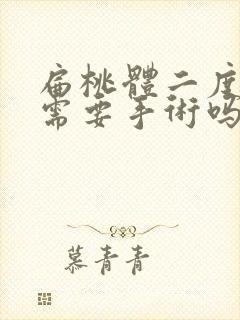 扁桃體二度
需要手術吗
慕青青